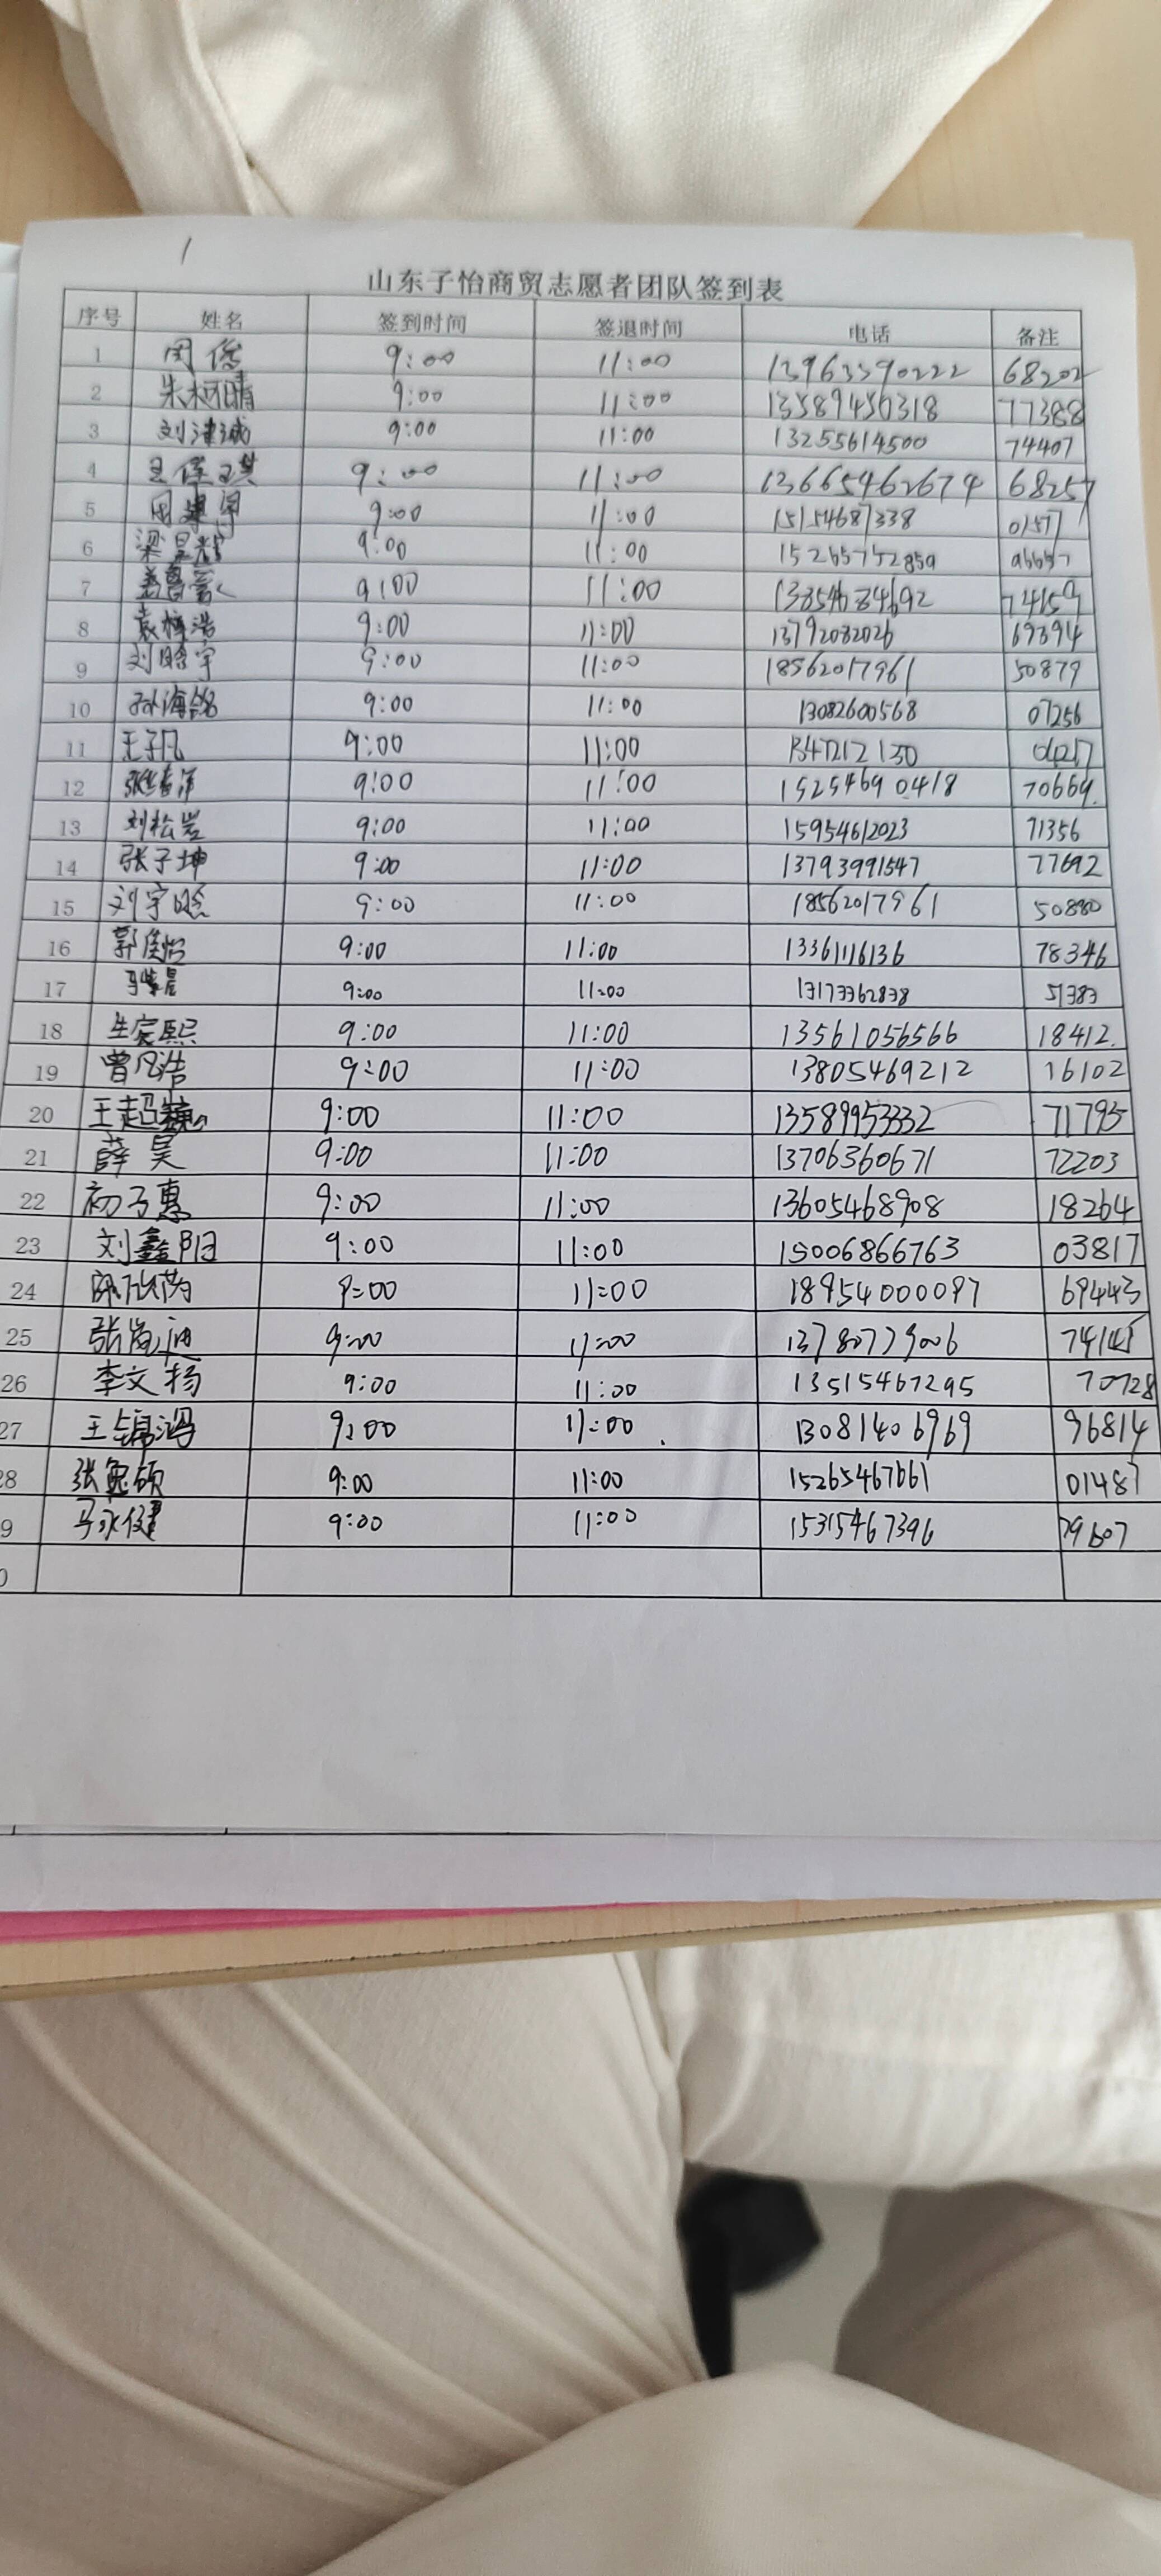 1
山东子怡商贸志愿者团队签到表
序号 姓名 签到时间 签退时间 电话 备注
1 周 9:00 11:00 13963390222 68202
2 朱柯晴 9:00 11:00 13589450318 77388
3 刘津诚 9:00 11:00 13255614500 74407
4 9:00 11:00 13665462674 68257
5 周 9:00 11:00 15154687338 01577
6 梁 9:00 11:00 15265752859
7 9:00 11:00 13854684692 74159
8 袁梓浩 9:00 11:00 13792082026 69394
9 刘晗宇 9:00 11:00 18562017961 50879
10 孙海铭 9:00 11:00 13082600568 07256
11 王子凡 9:00 11:00
12 9:00 11:00 15254690418 70669
13 刘松岩 9:00 11:00 15954612023 71356
14 张子坤 9:00 11:00 13793991547 77692
15 刘宇晗 9:00 11:00 18562017961 50880
16 郭俊怡 9:00 11:00 13361116136 78346
17 马紫晨 9:00 11:00 13173362838 51383
18 生家熙 9:00 11:00 13561056566 18412.
19 曾凡浩 9:00 11:00 13805469212 16102
20 王超巍 9:00 11:00 13589953332 71795
21 薛昊 9:00 11:00 13706360671 72203
22 初子惠 9:00 11:00 13605468908 18264
23 刘鑫阳 9:00 11:00 15006866763 03817
24 9:00 11:00 18954000097 69443
25 张岚迪 9:00 11:00 13780779006 74145
26 李文扬 9:00 11:00 13515467295 70728
27 王锦鸿 9:00 11:00 13081406969 96814
8 张逸硕 9:00 11:00 15265467661 01487
9 马永健 9:00 11:00 15315467396 79607
0